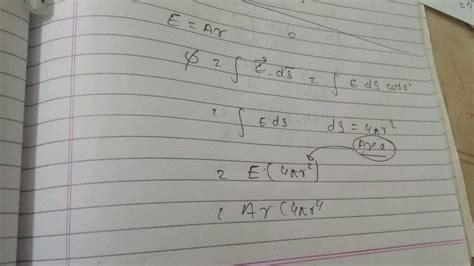 E = Ar
φ = ∫ E⃗ · ds⃗ = ∫ E ds cos0°
= ∫ E ds ds = 4πr²
Area
= E · (4πr²)
= Ar (4πr²